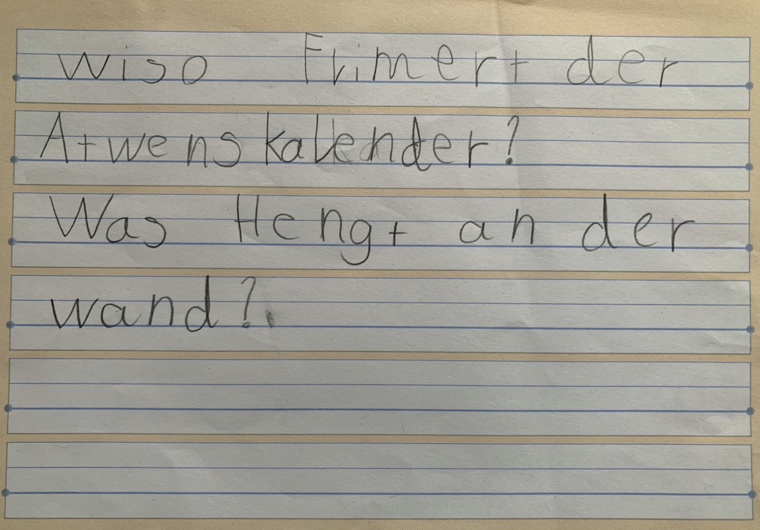 wiso Flimert der
Atwenskalender?
Was Hengt an der
wand?.